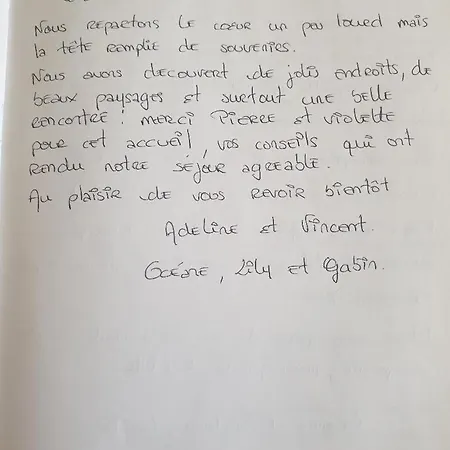 Nous repartons le cœur un peu lourd mais
la tête remplie de souvenirs.
Nous avons decouvert de jolis endroits, de
beaux paysages et surtout une belle
rencontre! merci Pierre et Violette
pour cet accueil, vos conseils qui ont
rendu notre séjour agreable.
Au plaisir de vous revoir bientôt
Adeline et Vincent.
Océane, Lily et Gabin.